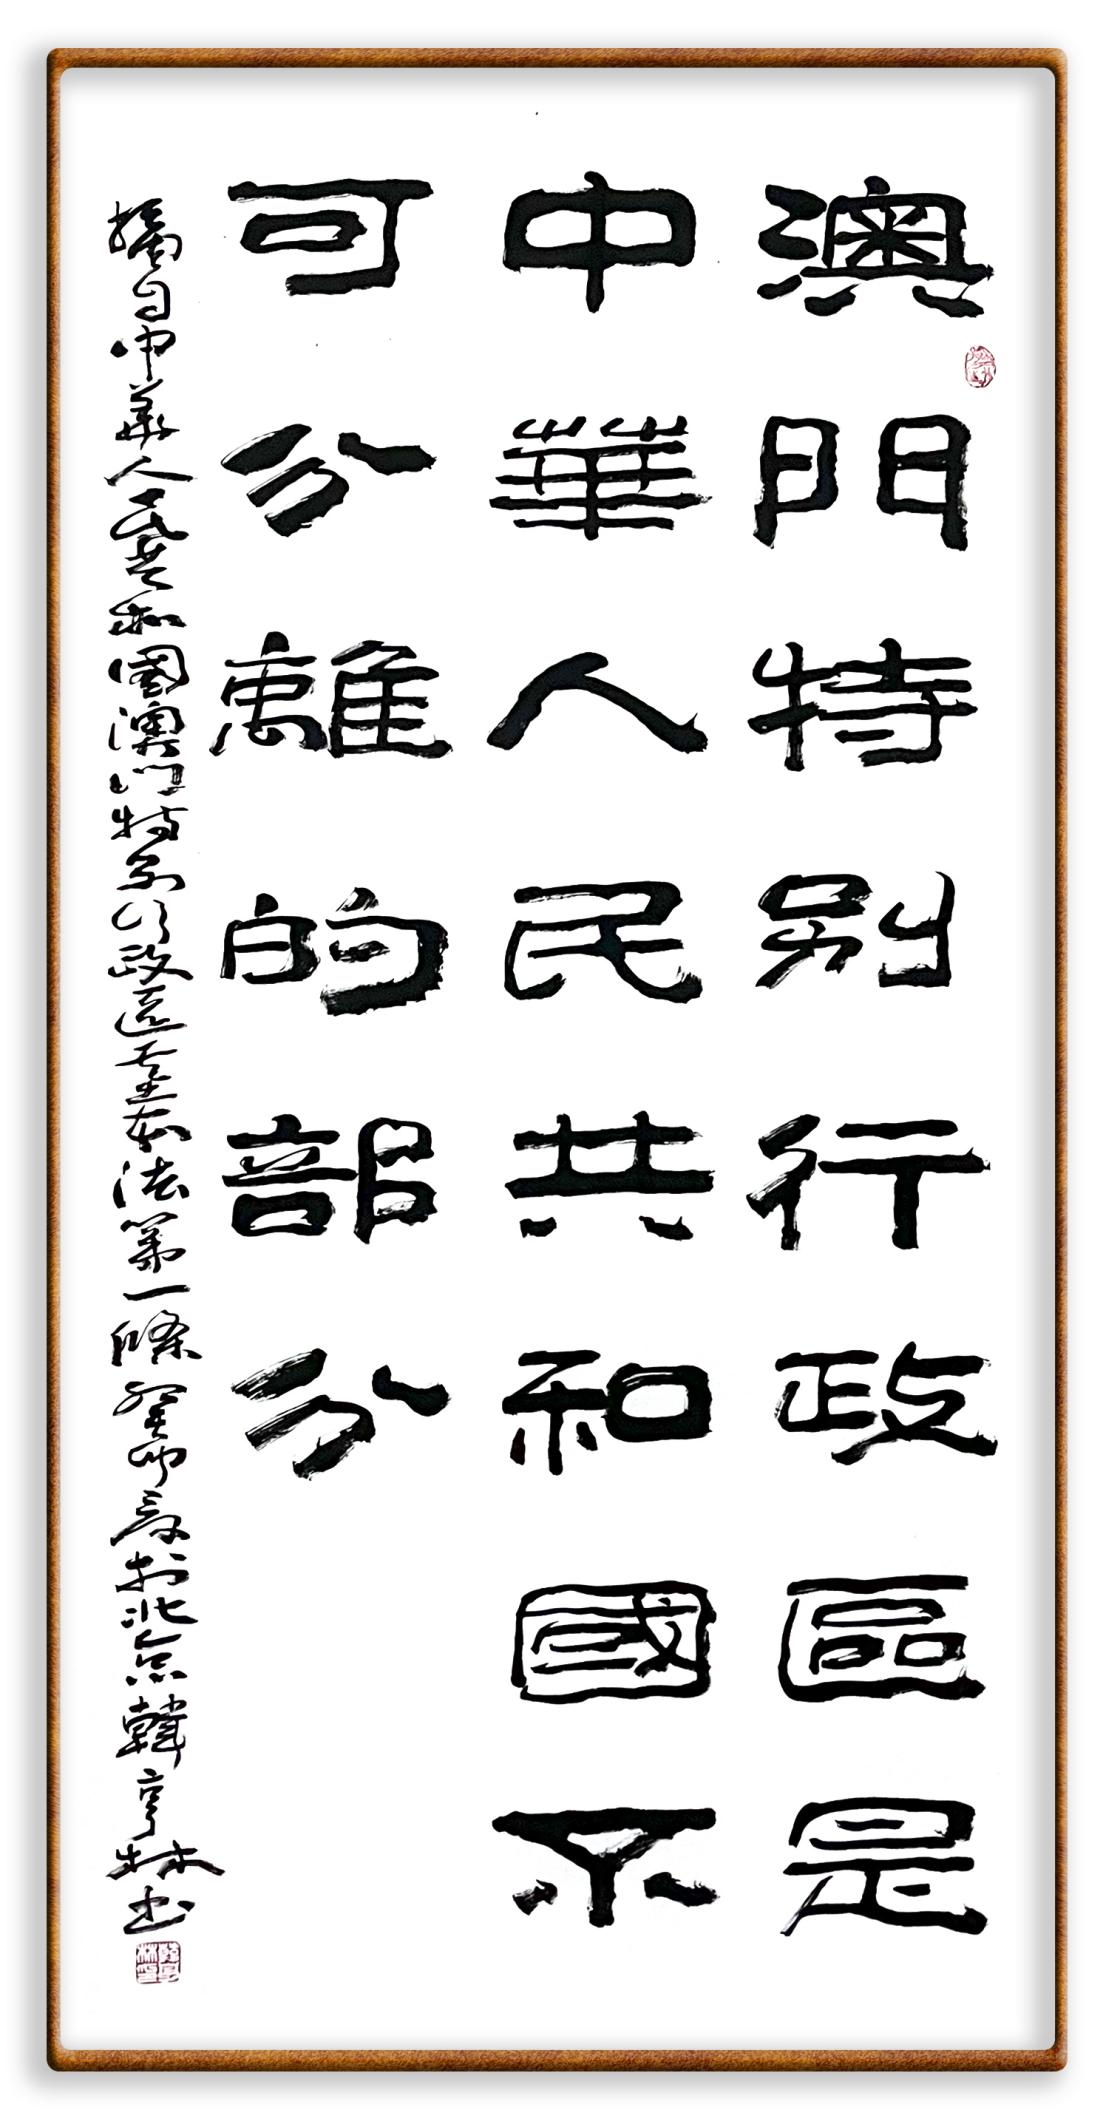 澳門特別行政區是
中華人民共和國不
可分離的部分
摘自中華人民共和國澳門特別行政區基本法第一條癸卯夏於北京韓亨林書